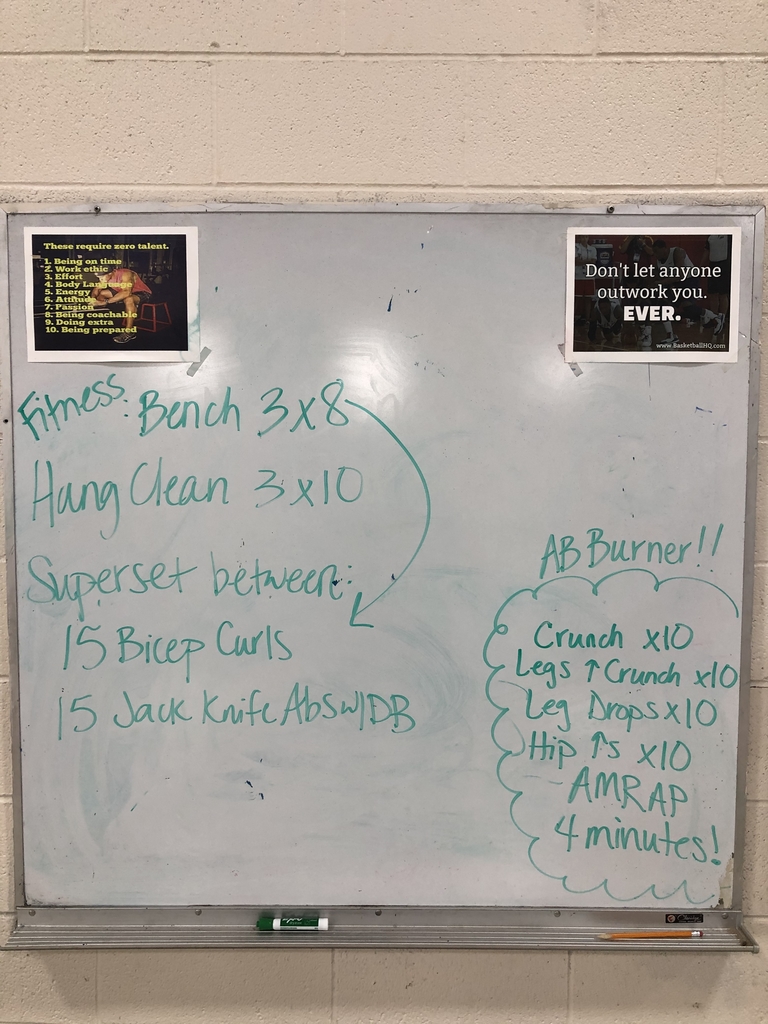 These require zero talent.
1. Being on time
2. Work ethic
3. Effort
4. Body Language
5. Energy
6. Attitude
7. Passion
8. Being coachable
9. Doing extra
10. Being prepared
Don't let anyone
outwork you.
EVER.
www.BasketballHQ.com
Fitness: Bench 3x8
Hang Clean 3x10
Superset between:
15 Bicep Curls
15 Jack Knife Abs w/DB
AB Burner!!
Crunch x10
Legs ↑ Crunch x10
Leg Drops x10
Hip ↑s x10
AMRAP
4 minutes!
expo